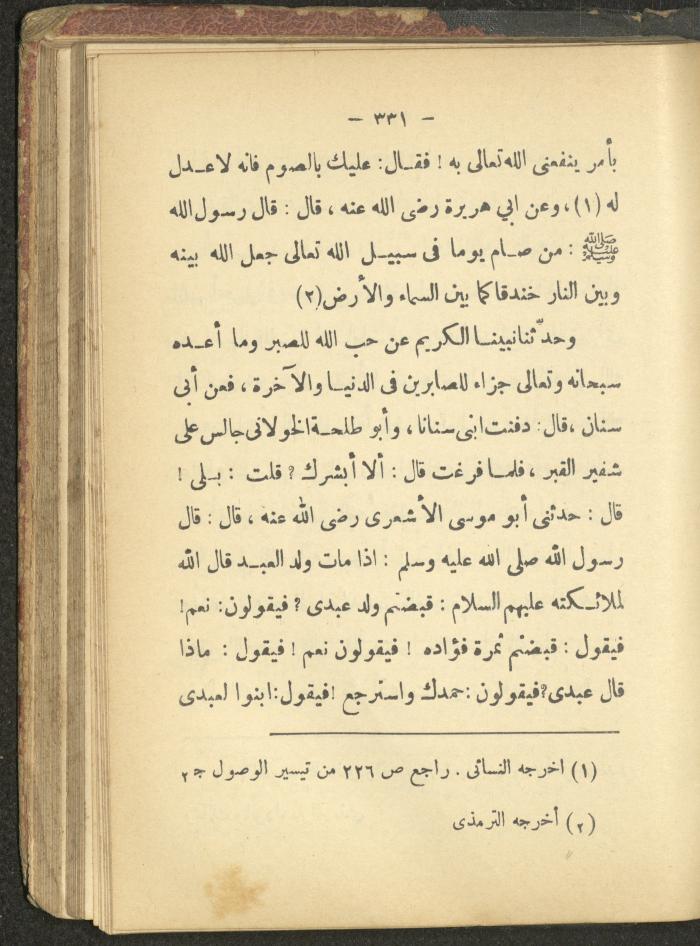 — ٣٣١ —
بأمر ينفعنى الله تعالى به ! فقـال: عليك بالصوم فانه لاعـدل
له (١)، وعن ابي هريرة رضى الله عنه ، قال : قال رسول الله
ﷺ : من صـام يوما فى سبيـل الله تعالى جعل الله بينه
وبين النار خندقا كما بين السماء والأرض (٢)
وحدّثنا نبينـا الكريم عن حب الله للصبر وما أعـده
سبحانه وتعالى جزاء للصابرين فى الدنيـا والآخرة ، فعن أبى
سنان ،قال: دفنت ابنى سنانا ، وأبو طلحـة الخولانى جالس على
شفير القبر ، فلمـا فرغت قال : ألا أبشرك ? قلت : بـلى !
قال : حدثنى أبو موسى الأشعرى رضى الله عنه ، قال : قال
رسول الله صلى الله عليه وسلم : اذا مات ولد العبـد قال الله
لملائـكته عليهم السلام : قبضتم ولد عبدى ? فيقولون: نعم!
فيقول : قبضتم ثمرة فؤاده ! فيقولون نعم ! فيقول : ماذا
قال عبدى?فيقولون :حمدك واسترجع !فيقول:ابنوا لعبدى
(١) اخرجه النسائى . راجع ص ٢٢٦ من تيسير الوصول ج ٢
(٢) أخرجه الترمذى